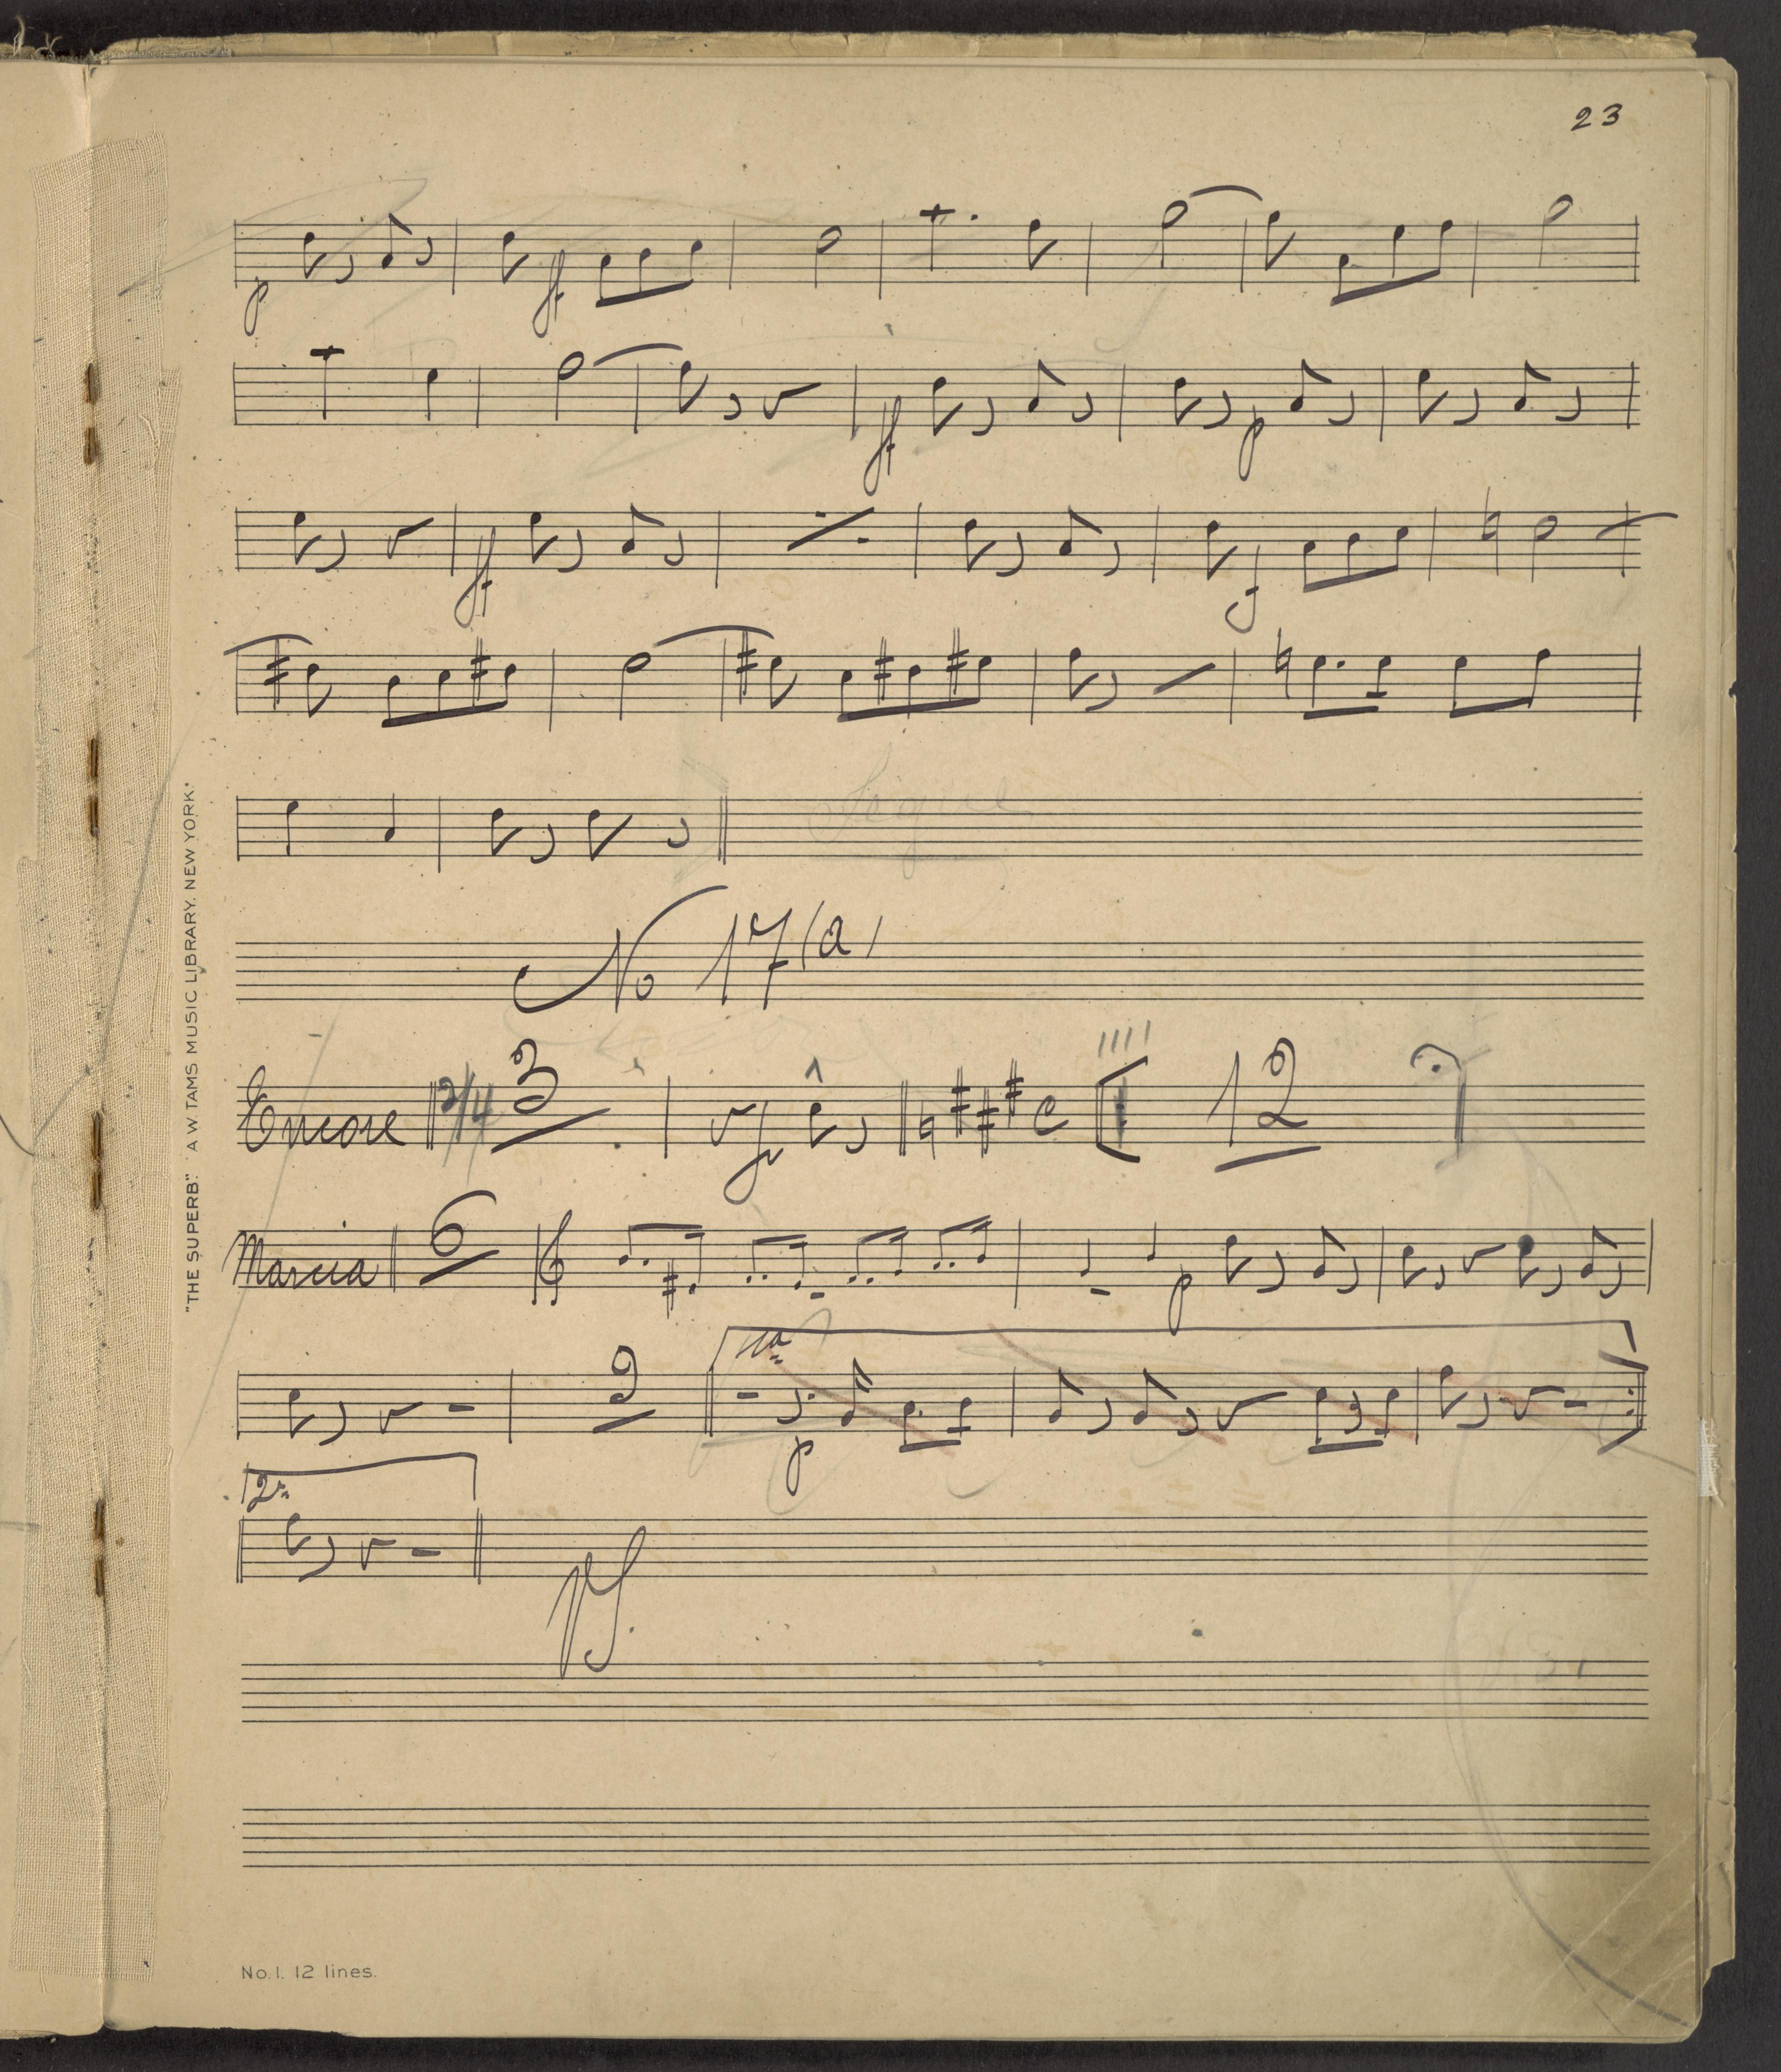 23
p ff
ff p
ff f
Segue
No 17(a)
Encore 2/4 3 f c 12
Marcia 6 p
2 1a p
2a
"THE SUPERB." A W TAMS MUSIC LIBRARY. NEW YORK.
No. 1. 12 lines.